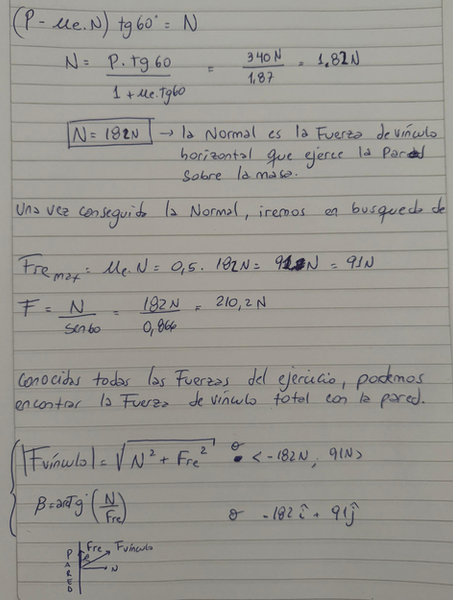 (P - μe.N) tg60° = N
N = P.tg60 / 1 + μe.tg60 = 340N / 1,87 = 1,82N
N = 182N → la Normal es la Fuerza de vínculo
horizontal que ejerce la Pared
sobre la masa.
Una vez conseguida la Normal, iremos en busqueda de
Fre max = μe.N = 0,5. 182N = N = 91N
F = N / sen60 = 182N / 0,866 = 210,2N
Conocidas todas las Fuerzas del ejercicio, podemos
encontrar la Fuerza de vínculo total con la pared.
|Fvínculo| = √N² + Fre² o < -182N ; 91N>
β = arctg (N / Fre) o -182 î + 91 ĵ
PARED Fre β Fvínculo N